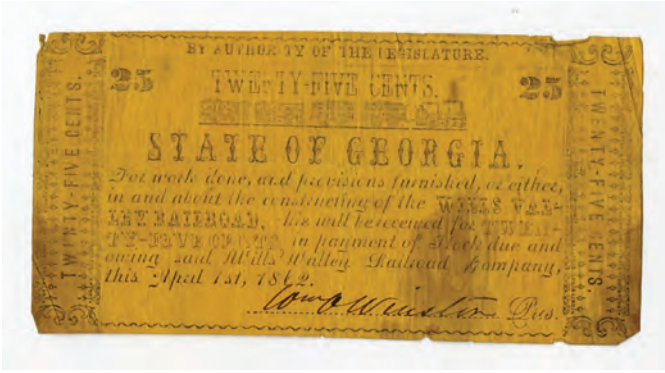 BY AUTHORITY OF THE LEGISLATURE.
25 TWENTY-FIVE CENTS. 25
STATE OF GEORGIA.
For work done, and provisions furnished, or either,
in and about the constructing of the WILLS VAL-
LEY RAILROAD, this will be received for TWEN-
TY-FIVE CENTS, in payment of Stock due and
owing said Wills Valley Railroad Company,
this April 1st, 1862.
Winston Pres.
TWENTY-FIVE CENTS.
TWENTY-FIVE CENTS.